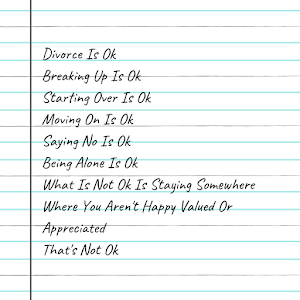 Divorce Is Ok
Breaking Up Is Ok
Starting Over Is Ok
Moving On Is Ok
Saying No Is Ok
Being Alone Is Ok
What Is Not Ok Is Staying Somewhere
Where You Aren't Happy Valued Or
Appreciated
That's Not Ok